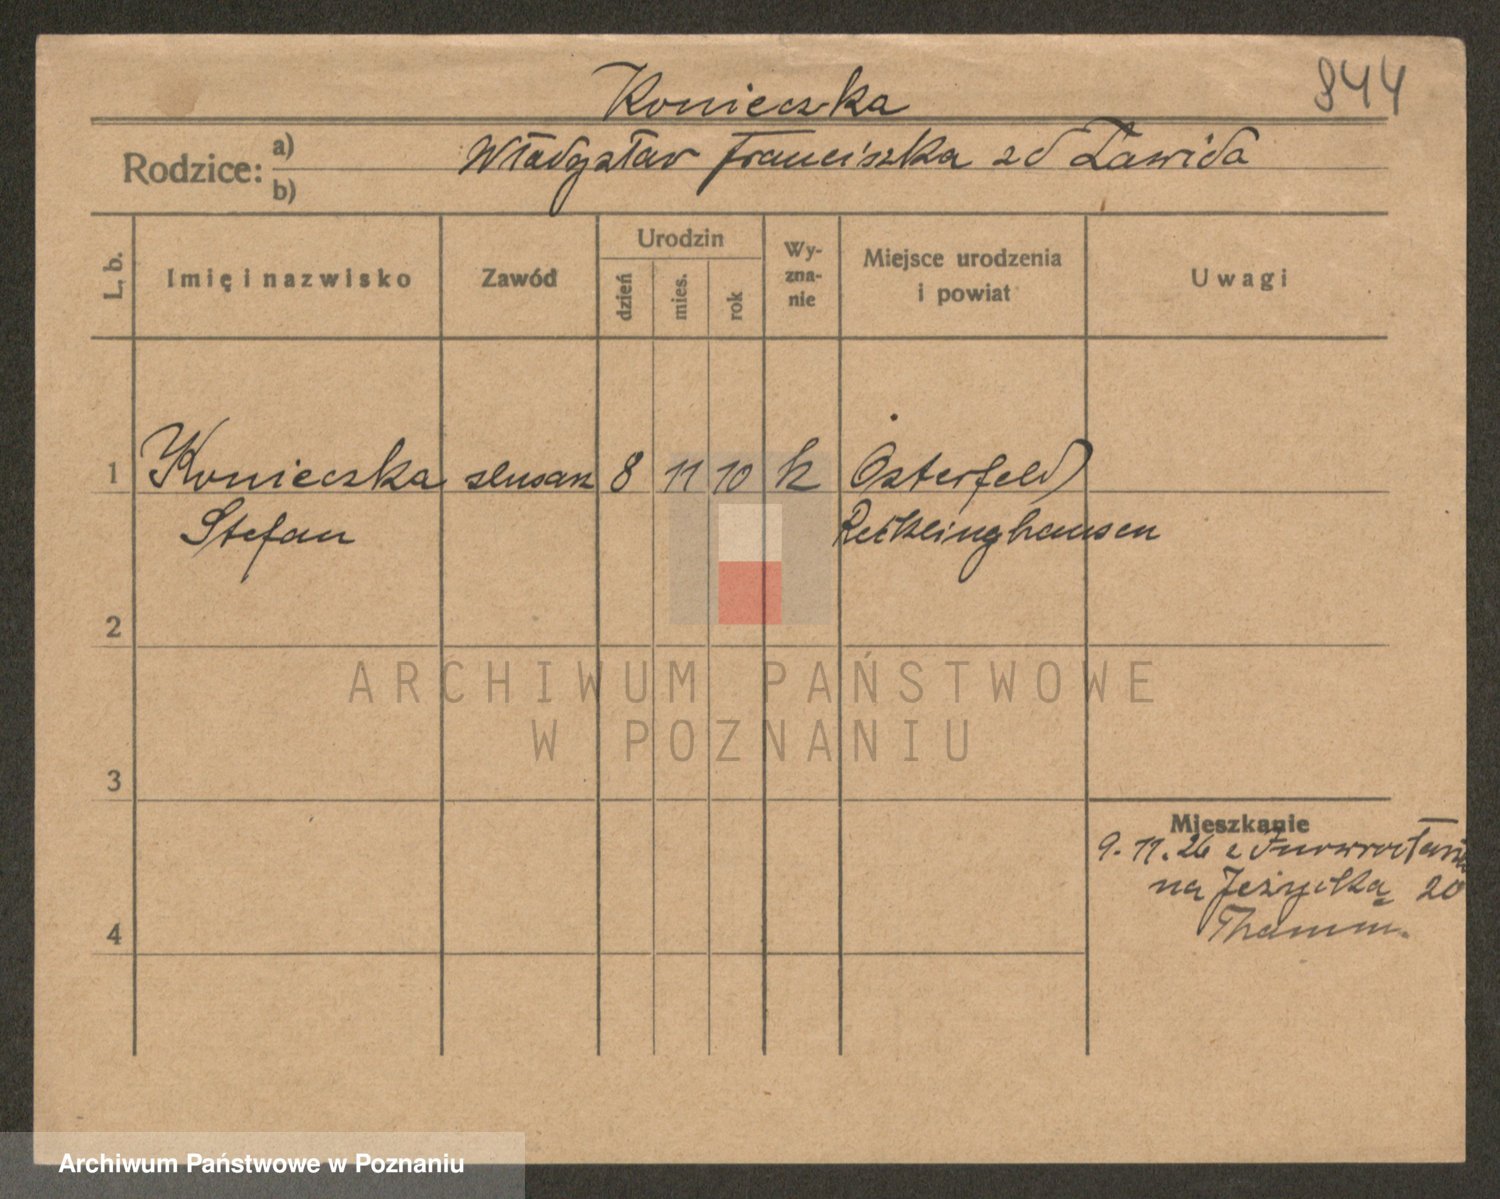 944
Konieczka
Rodzice: a) Władysław Franciszka zd Zawida
b)
L. b. Imię i nazwisko Zawód Urodzin dzień mies. rok Wy-zna-nie Miejsce urodzenia i powiat Uwagi
1 Konieczka ślusarz 8 11 10 k Osterfeld
Stefan Recklinghausen
2
ARCHIWUM PAŃSTWOWE
W POZNANIU
3
Mieszkanie
9.11.26 z
na Jeżycką 20
Thamm.
4
Archiwum Państwowe w Poznaniu